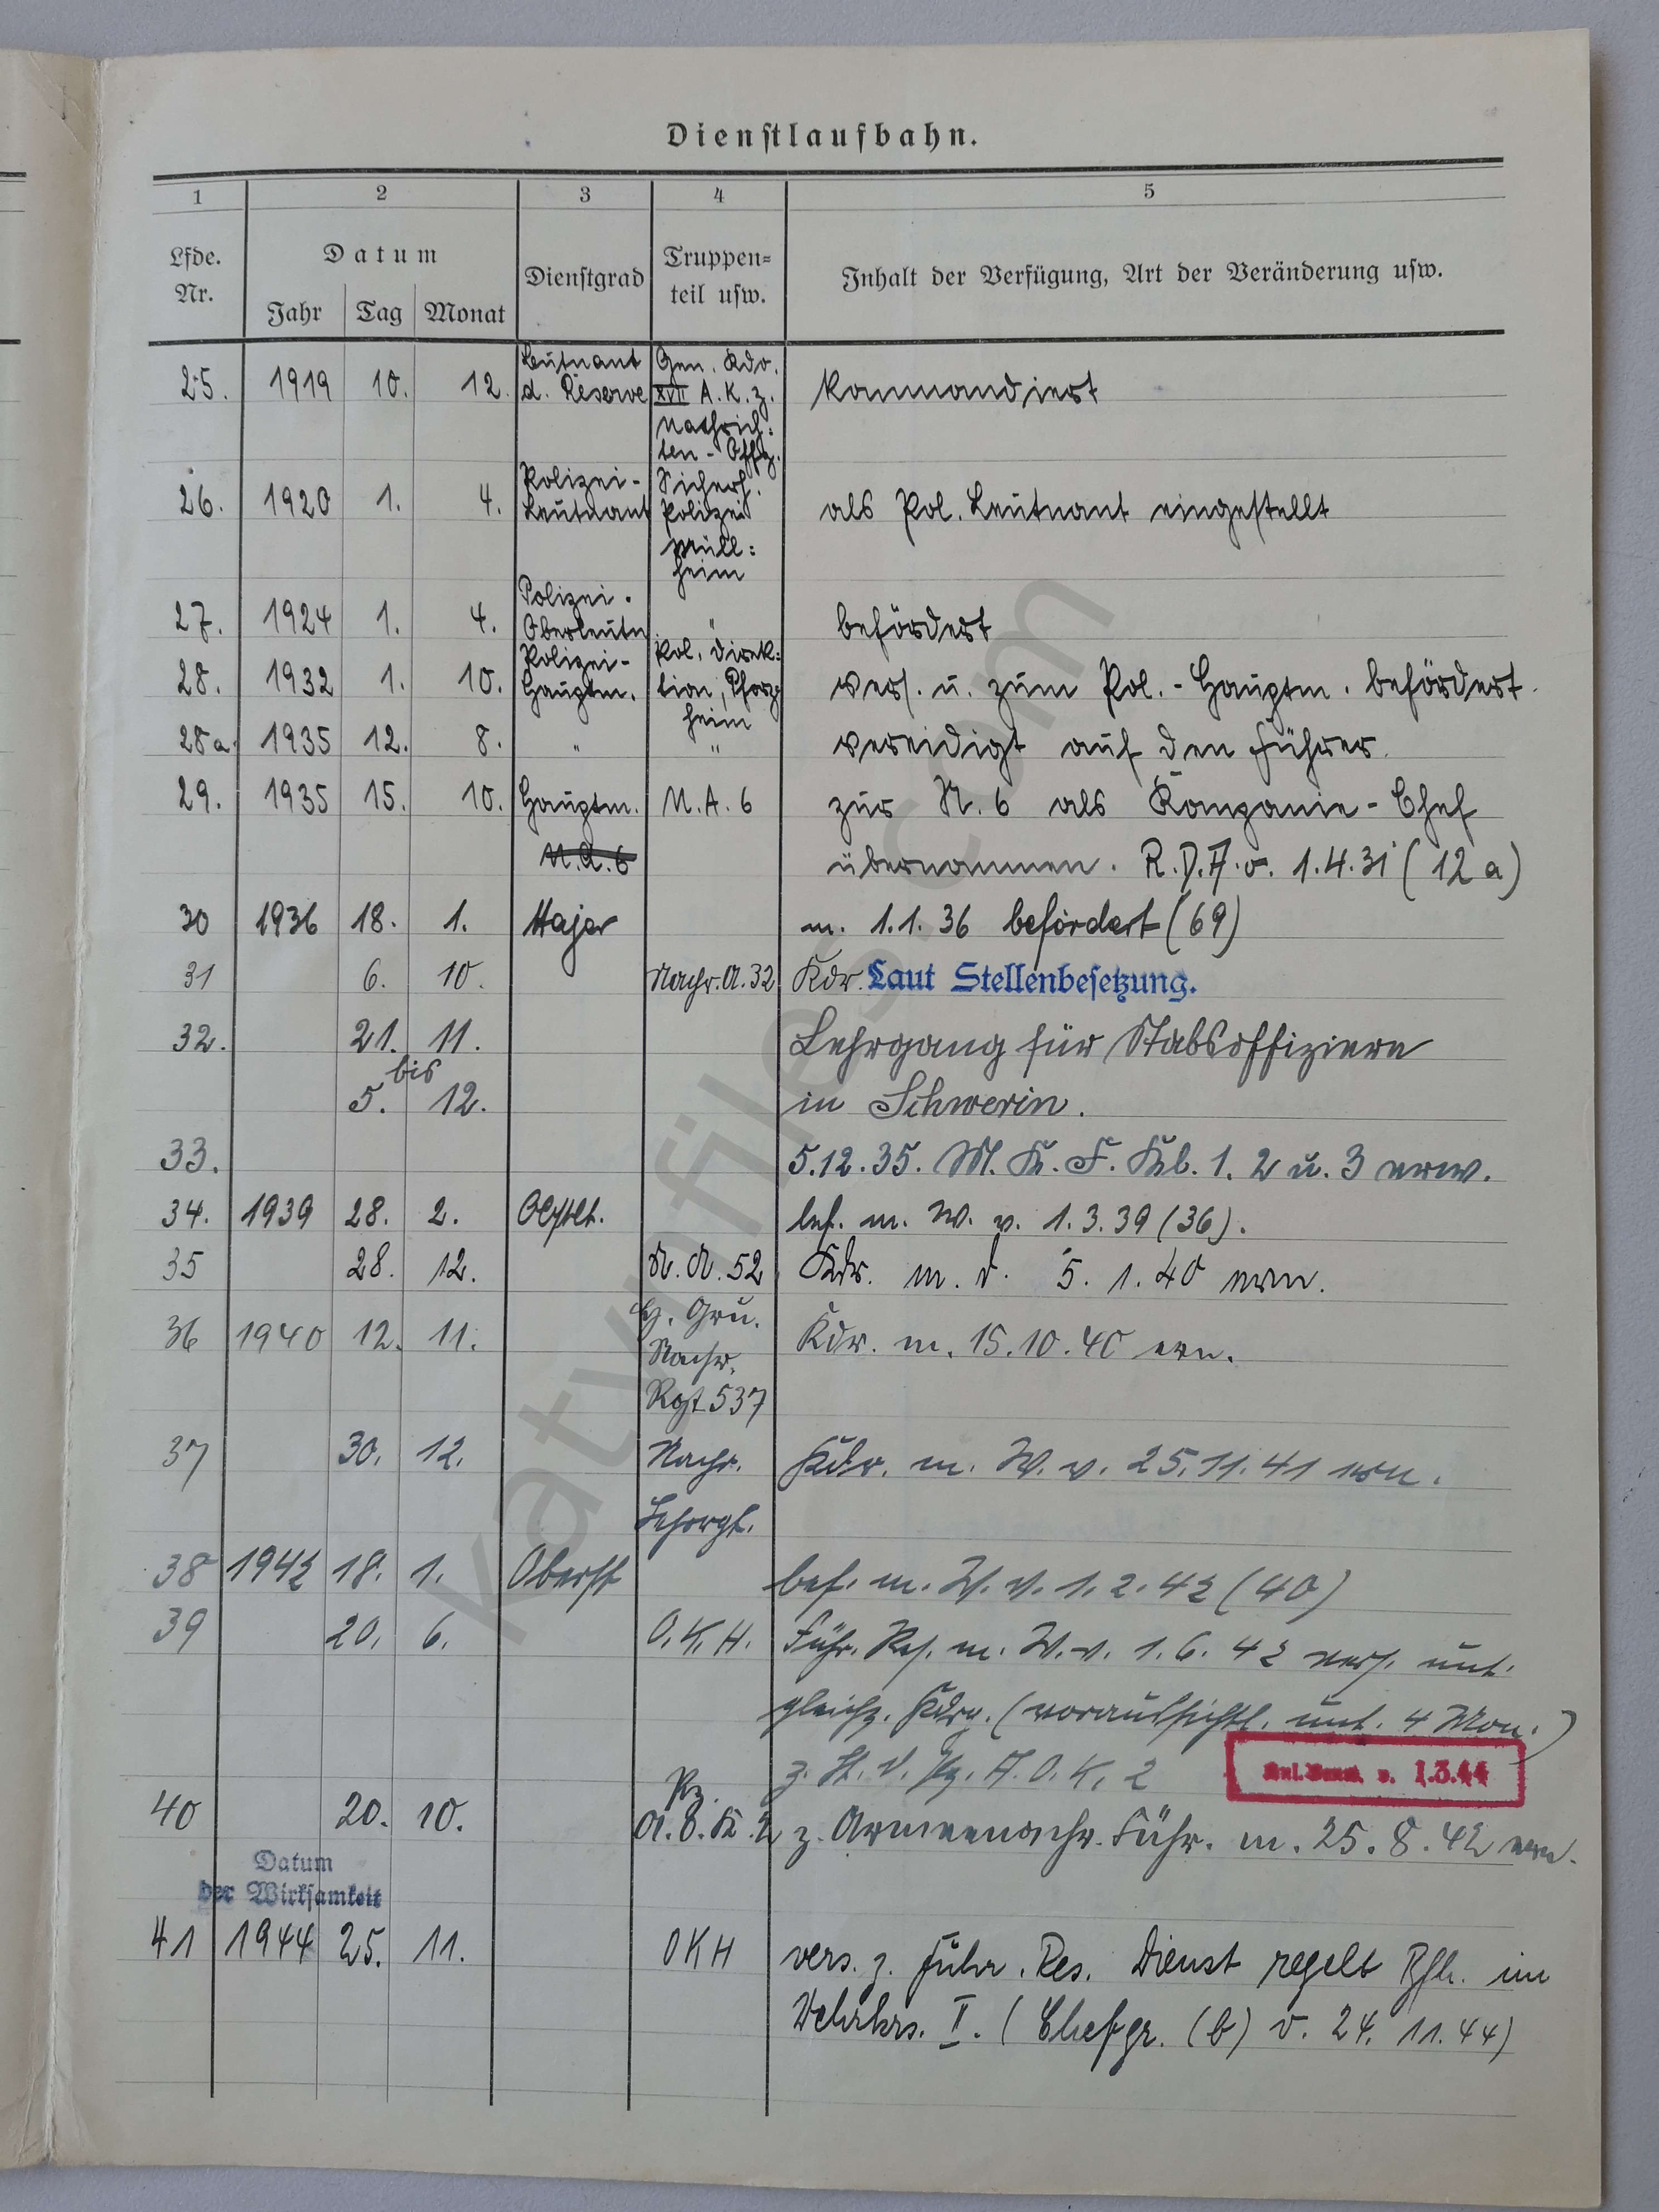 Dienstlaufbahn.
1 2 3 4 5
Lfde. Nr. Datum Dienstgrad Truppen= teil usw. Inhalt der Verfügung, Art der Veränderung usw.
Jahr Tag Monat
25. 1919 10. 12. Leutnant d. Reserve Gen. Kdo. XVII A.K. z. Nachrich: ten-Offz. kommandiert
26. 1920 1. 4. Polizei-Leutnant Sicherh. Polizei Müll: heim als Pol. Leutnant eingestellt
27. 1924 1. 4. Polizei-Oberleutn. " befördert
28. 1932 1. 10. Polizei-Hauptm. Pol. Direk: tion, Pforz heim vers. u. zum Pol.-Hauptm. befördert.
28a. 1935 12. 8. " " vereidigt auf den Führer.
29. 1935 15. 10. Hauptm. N.A. 6 zur N. 6 als Kompanie-Chef
N.A. 6 übernommen. R.D.A. v. 1.4.31 (12a)
30 1936 18. 1. Major m. 1.1.36 befördert (69)
31 6. 10. Nachr.A.32 Kdr. Laut Stellenbesetzung.
32. 21. 11. Lehrgang für Stabsoffiziere
bis
5. 12. in Schwerin.
33. 5.12.35. M. K. F. Kl. 1. 2 u. 3 erw.
34. 1939 28. 2. Obstlt. bef. m. W. v. 1.3.39 (36).
35 28. 12. N.A. 52 Kdr. m. d. 5. 1. 40 ern.
36 1940 12. 11. H. Gru. Nachr. Rgt 537 Kdr. m. 15.10.40 ern.
37 30. 12. Nachr. Lehrrgt. Kdr. m. W. v. 25.11.41 ern.
38 1942 18. 1. Oberst bef. m. W. v. 1.2.42 (40)
39 20. 6. O.K.H. Führ. Res. m. W. v. 1.6.42 vers. unt.
gleichz. Kdrg. (voraussichtl. unt. 4 Mon.)
z. St. d. Pz. A.O.K. 2 v. 1.3.44
40 20. 10. Pz. A.O.K. 2 z. Armeenachr. Führ. m. 25.8.42 ern.
Datum
der Wirksamkeit
41 1944 25. 11. OKH vers. z. Führ. Res. Dienst regelt Bfh. im
Wehrkrs. II. (Chefgr. (b) v. 24.11.44)
katynfiles.com